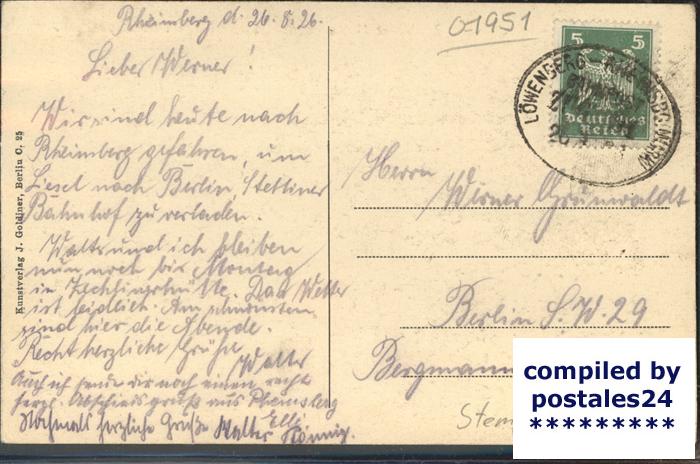 Rheinsberg d. 26.8.26.
Lieber Werner!
Wir sind heute nach
Rheinsberg gefahren, um
Liesel nach Berlin Stettiner
Bahnhof zu verladen.
Walter und ich bleiben
nun noch bis Montag
in Zechlinerhütte. Das Wetter
ist leidlich. Am schönsten
sind hier die Abende.
Recht herzliche Grüße
Walter
Auch ich sende dir noch einen recht
herzl. Abschiedsgruß aus Rheinsberg
Elli
Nochmals herzliche Grüße Walter
Kunstverlag J. Goldiner, Berlin C. 25
01951
5 5
Deutsches
Reich
LÖWENBERG
Herrn
Werner Grunwaldt
Berlin S.W. 29
Bergmann
Stem
compiled by
postales24
*********